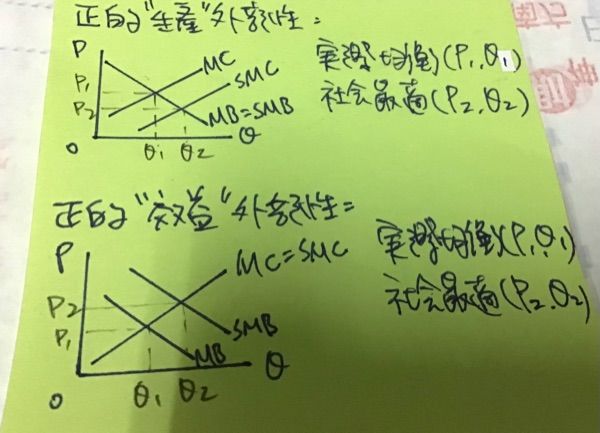 正的"生產"外部性=
P
MC
SMC
P1
P2
MB=SMB
O
Q1
Q2
Q
實際均衡(P1,Q1)
社會最適(P2,Q2)
正的"效益"外部性=
P
MC=SMC
P2
P1
SMB
MB
O
Q1
Q2
Q
實際均衡(P1,Q1)
社會最適(P2,Q2)